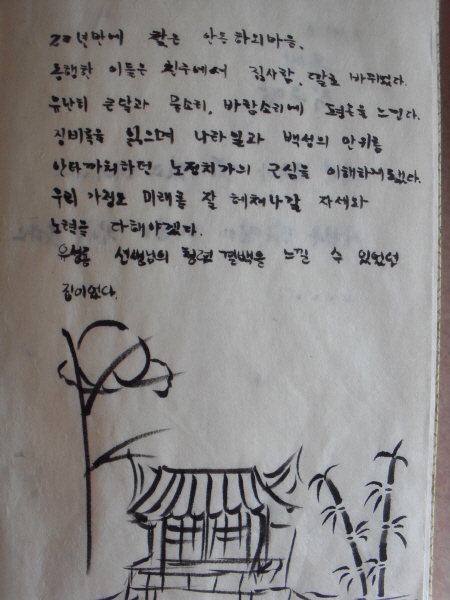 20년만에 찾은 안동하회마을.
동행한 이들은 친구에서 집사람, 딸로 바뀌었다.
유난히 큰달과 물소리, 바람소리에 평온을 느낀다.
징비록을 읽으며 나라일과 백성의 안위를
안타까워하던 노정치가의 근심을 이해하게됐다.
우리 가정도 미래를 잘 헤쳐나갈 자세와
노력을 다해야겠다.
유성룡 선생님의 청렴 결백을 느낄 수 있었던
집이었다.